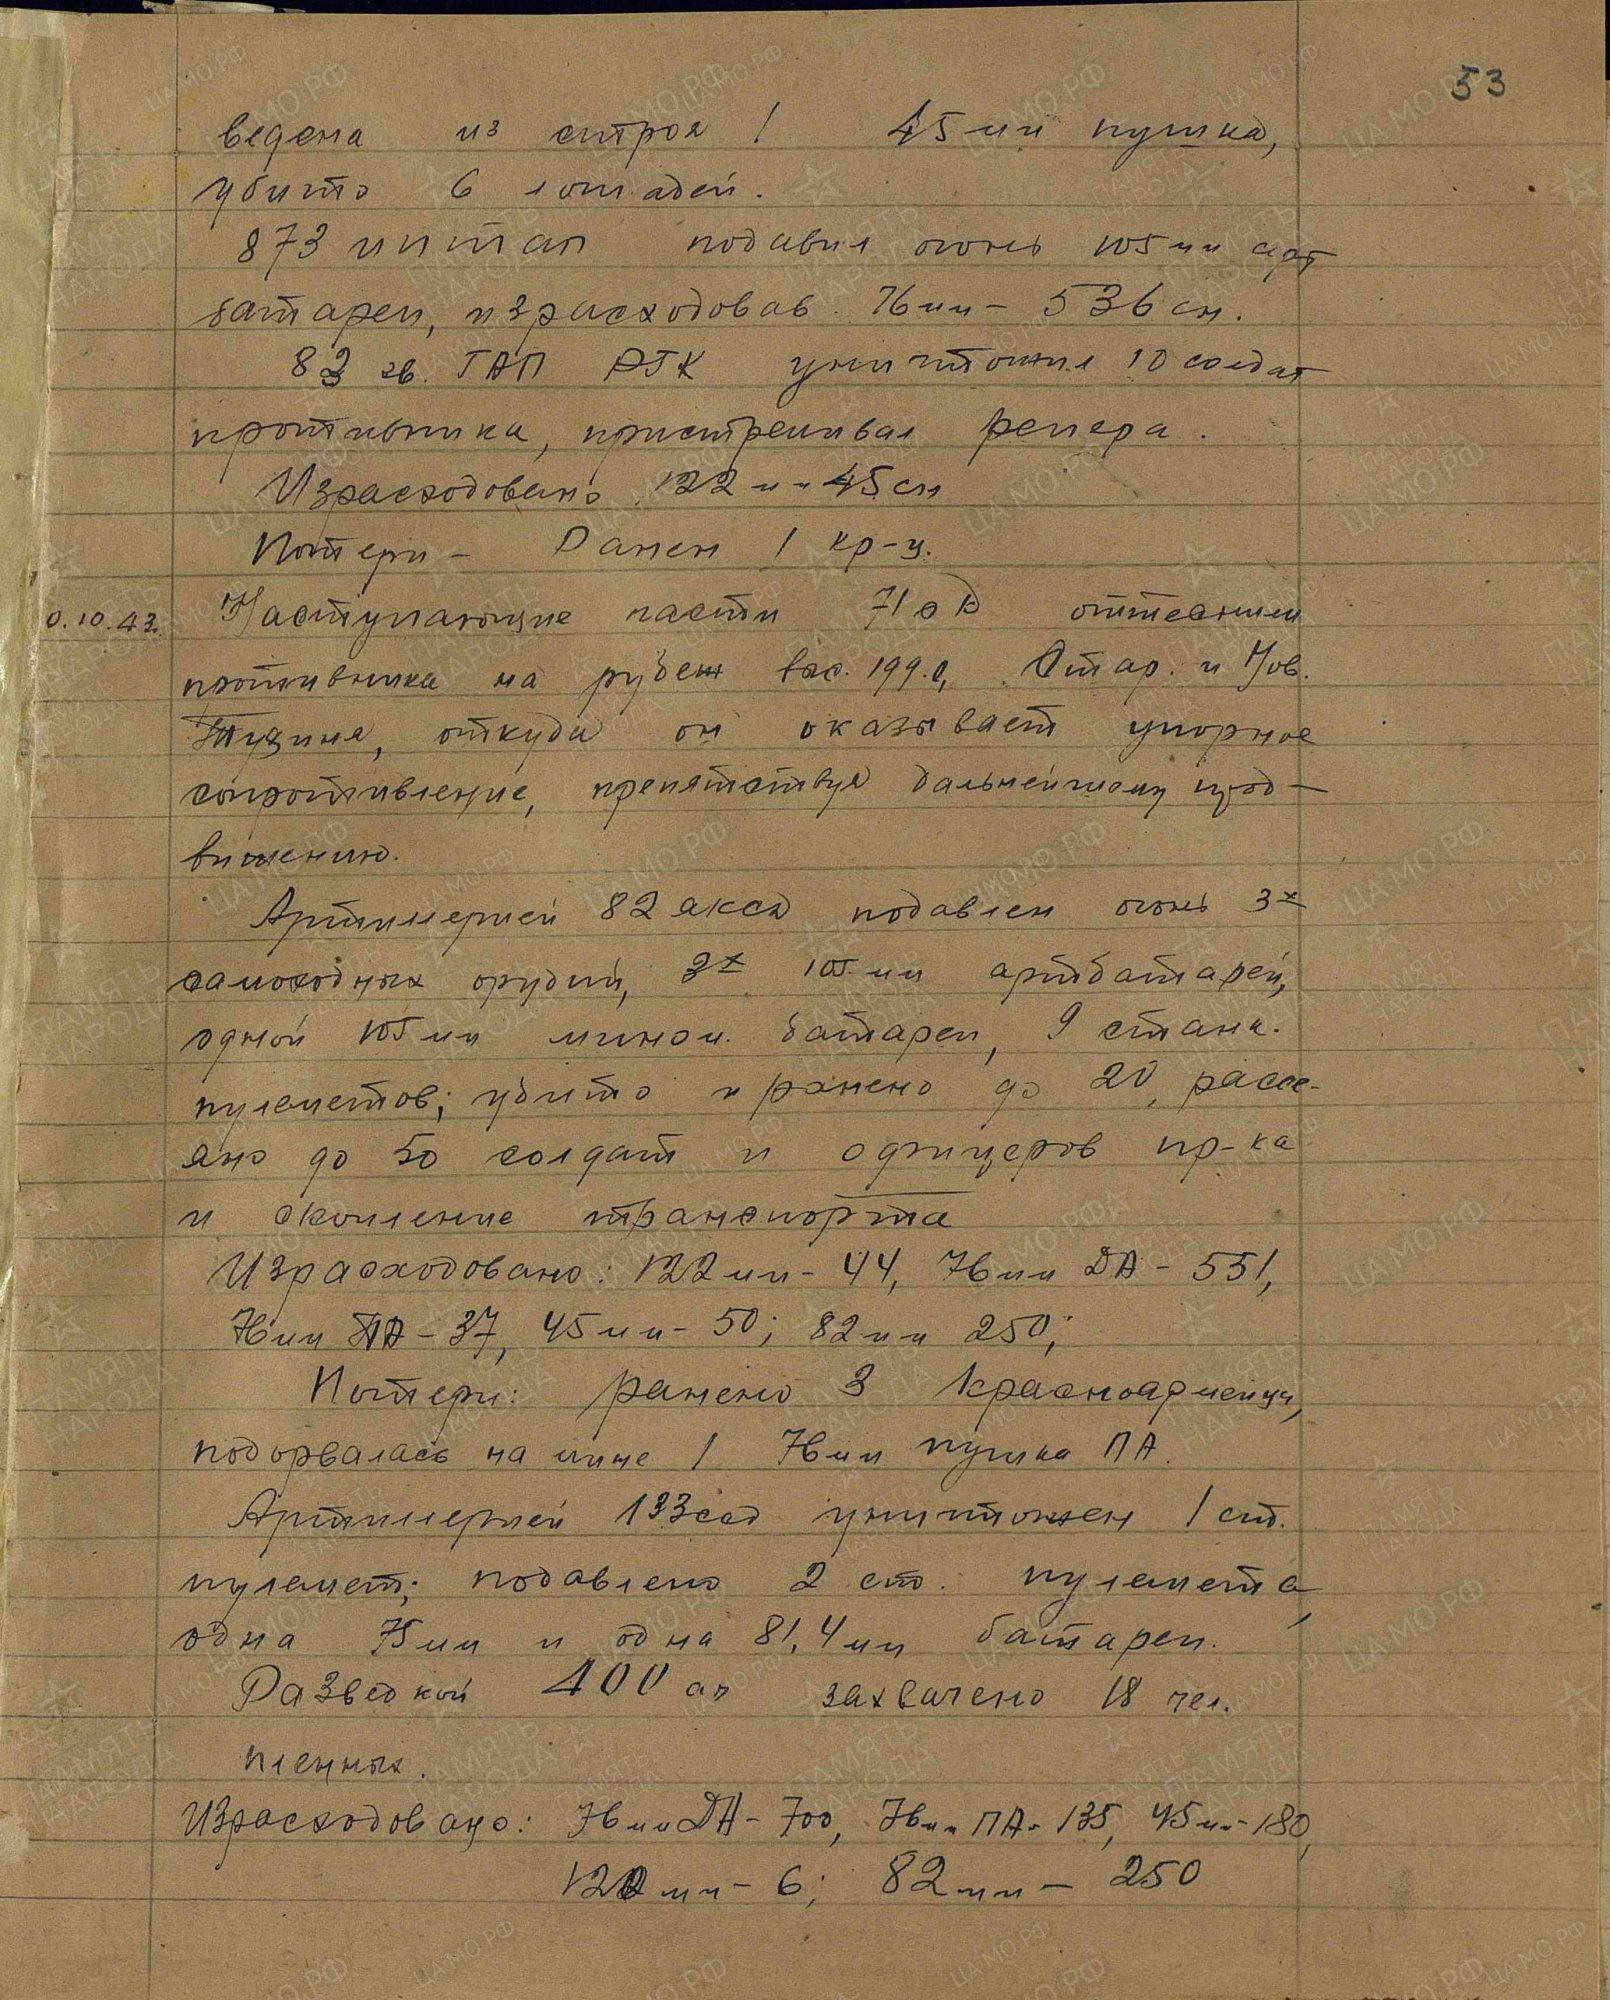 53
ведена из строя 1 45 мм пушка,
убито 6 лошадей.
873 иптап подавил огонь 105 мм арт
батареи, израсходовав 76 мм - 536 сн.
83 гв. ГАП РГК уничтожил 10 солдат
противника, пристреливал репера.
Израсходовано 122 мм 45 сн
Потери - Ранен 1 кр-ц.
0.10.43. Наступающие части 71 ск оттеснили
противника на рубеж выс. 199.0, Стар. и Нов.
откуда он оказывает упорное
сопротивление, препятствуя дальнейшему прод-
вижению.
Артиллерией 82 яксд подавлен огонь 3х
самоходных орудий, 3х 105 мм артбатарей,
одной 105 мм мином. батареи, 9 станк.
пулеметов; убито и ранено до 20, рассе-
яно до 50 солдат и офицеров пр-ка
и скопление транспорта
Израсходовано: 122 мм - 44, 76 мм ДА - 551,
76 мм ПА - 37, 45 мм - 50; 82 мм 250;
Потери: ранено 3 красноармейца,
подорвалась на мине 1 76 мм пушка ПА.
Артиллерией 133 сд уничтожен 1 ст.
пулемет; подавлено 2 ст. пулемета,
одна 75 мм и одна 81,4 мм батареи.
Разведкой 400 ап захвачено 18 чел.
пленных.
Израсходовано: 76 мм ДА - 700, 76 мм ПА - 135, 45 мм - 180,
120 мм - 6; 82 мм - 250